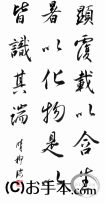 顯覆載以含生
暑以化物是以
皆識其端
(C)お手本.com